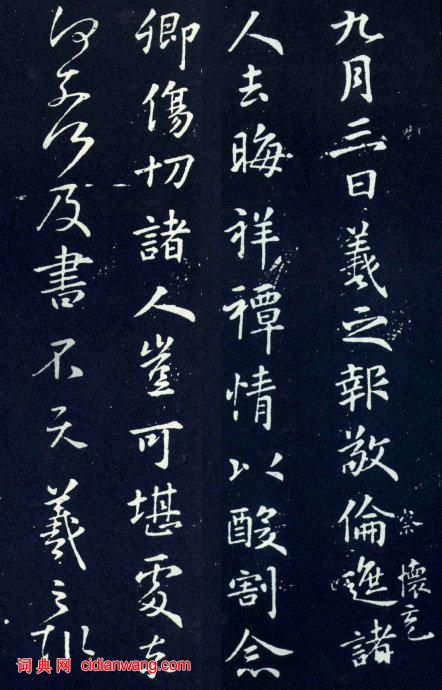 九月三日羲之報敬倫遮諸
察懷充
人去晦祥禫情以酸割念
卿傷切諸人豈可堪處奈
何奈何及書不次羲之報
词典网 cidianwang.com